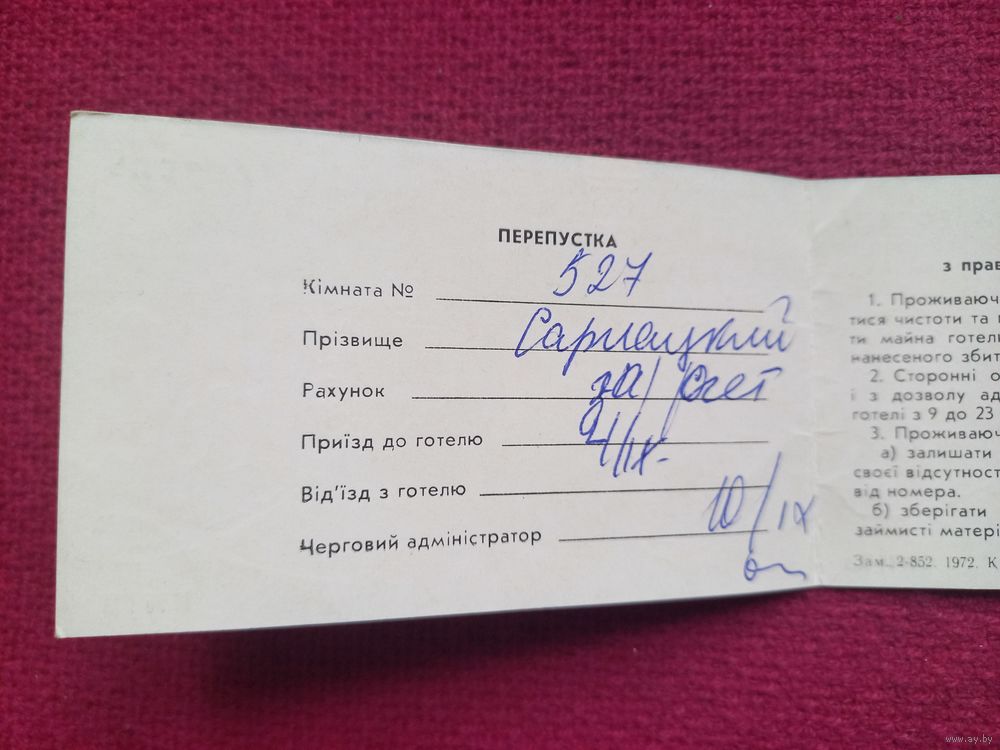 ПЕРЕПУСТКА
Кімната № 527
Прізвище
Рахунок за/счет
Приїзд до готелю 4/IX-
Від'їзд з готелю 10/IX
Черговий адміністратор
з прав
1. Проживаюч
тися чистоти та
ти майна готел
нанесеного збит
2. Сторонні о
і з дозволу ад
готелі з 9 до 23
3. Проживаюч
а) залишати
своєї відсутност
від номера.
б) зберігати
займисті матері
Зам. 2-852. 1972. К
www.ay.by